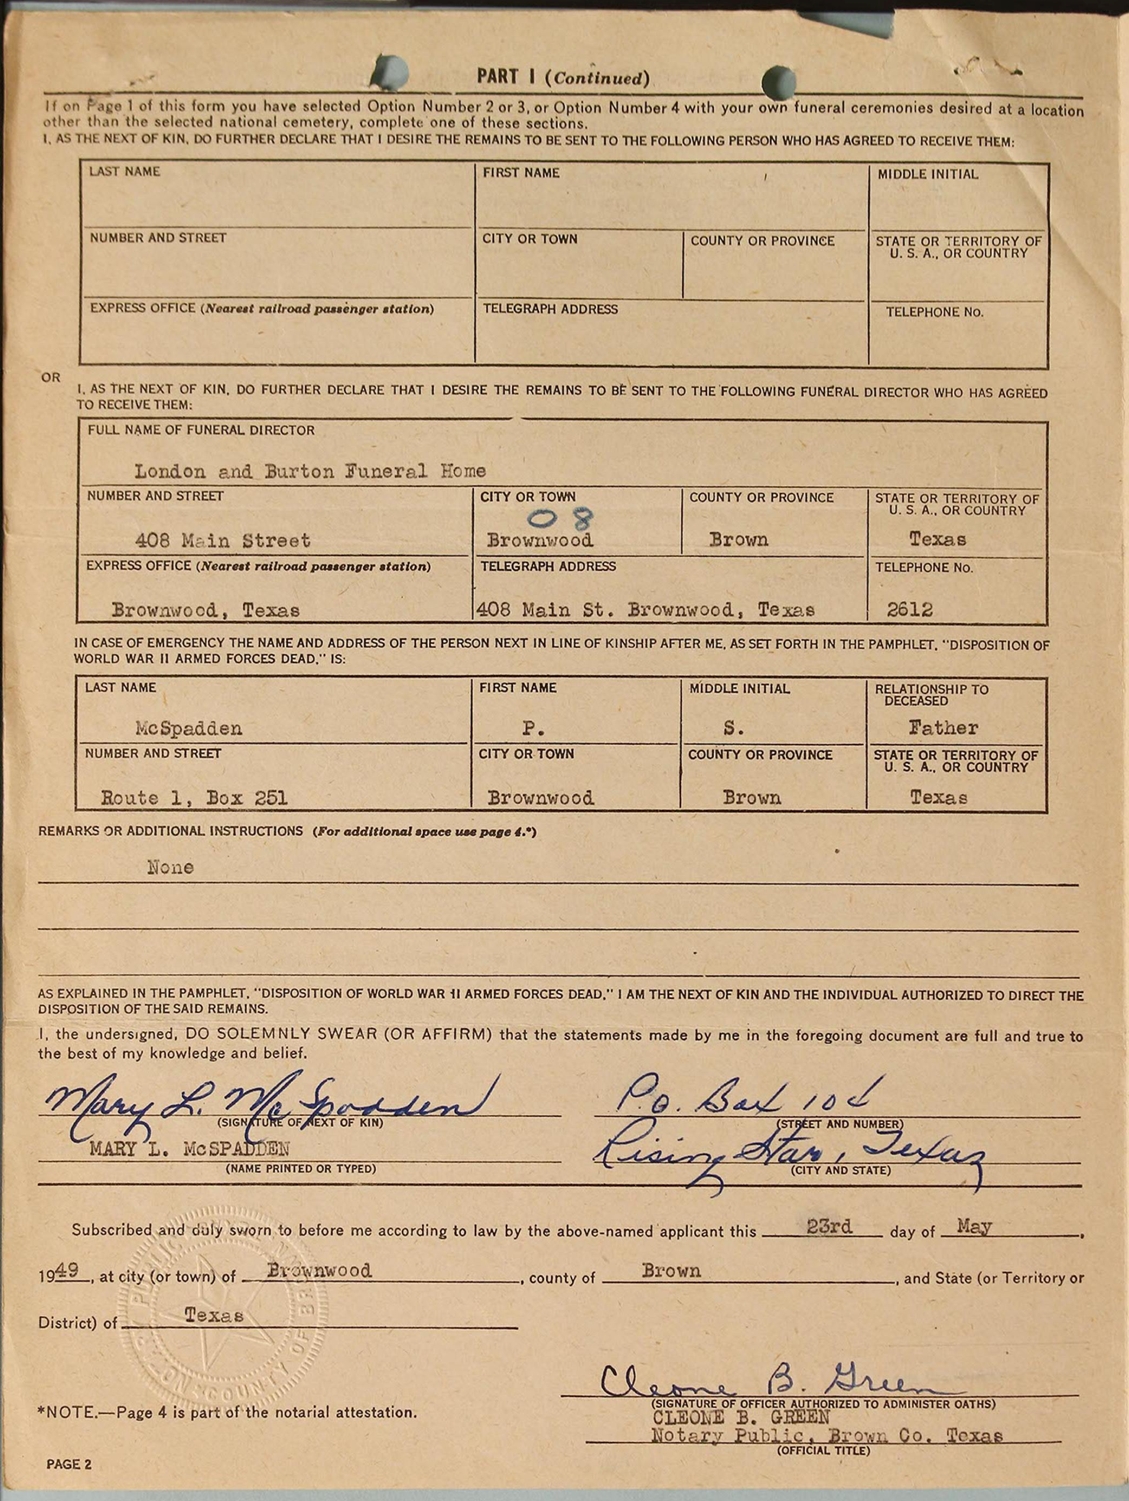 PART I (Continued)
If on Page 1 of this form you have selected Option Number 2 or 3, or Option Number 4 with your own funeral ceremonies desired at a location
other than the selected national cemetery, complete one of these sections.
I, AS THE NEXT OF KIN, DO FURTHER DECLARE THAT I DESIRE THE REMAINS TO BE SENT TO THE FOLLOWING PERSON WHO HAS AGREED TO RECEIVE THEM:
LAST NAME FIRST NAME MIDDLE INITIAL
NUMBER AND STREET CITY OR TOWN COUNTY OR PROVINCE STATE OR TERRITORY OF
U. S. A., OR COUNTRY
EXPRESS OFFICE (Nearest railroad passenger station) TELEGRAPH ADDRESS TELEPHONE No.
OR
I, AS THE NEXT OF KIN, DO FURTHER DECLARE THAT I DESIRE THE REMAINS TO BE SENT TO THE FOLLOWING FUNERAL DIRECTOR WHO HAS AGREED
TO RECEIVE THEM:
FULL NAME OF FUNERAL DIRECTOR
London and Burton Funeral Home
NUMBER AND STREET CITY OR TOWN COUNTY OR PROVINCE STATE OR TERRITORY OF
U. S. A., OR COUNTRY
08
408 Main Street Brownwood Brown Texas
EXPRESS OFFICE (Nearest railroad passenger station) TELEGRAPH ADDRESS TELEPHONE No.
Brownwood, Texas 408 Main St. Brownwood, Texas 2612
IN CASE OF EMERGENCY THE NAME AND ADDRESS OF THE PERSON NEXT IN LINE OF KINSHIP AFTER ME, AS SET FORTH IN THE PAMPHLET, "DISPOSITION OF
WORLD WAR II ARMED FORCES DEAD," IS:
LAST NAME FIRST NAME MIDDLE INITIAL RELATIONSHIP TO
DECEASED
McSpadden P. S. Father
NUMBER AND STREET CITY OR TOWN COUNTY OR PROVINCE STATE OR TERRITORY OF
U. S. A., OR COUNTRY
Route 1, Box 251 Brownwood Brown Texas
REMARKS OR ADDITIONAL INSTRUCTIONS (For additional space use page 4.*)
None
AS EXPLAINED IN THE PAMPHLET, "DISPOSITION OF WORLD WAR II ARMED FORCES DEAD," I AM THE NEXT OF KIN AND THE INDIVIDUAL AUTHORIZED TO DIRECT THE
DISPOSITION OF THE SAID REMAINS.
I, the undersigned, DO SOLEMNLY SWEAR (OR AFFIRM) that the statements made by me in the foregoing document are full and true to
the best of my knowledge and belief.
Mary L. McSpadden P.O. Box 104
(SIGNATURE OF NEXT OF KIN) (STREET AND NUMBER)
MARY L. McSPADDEN Rising Star, Texas
(NAME PRINTED OR TYPED) (CITY AND STATE)
Subscribed and duly sworn to before me according to law by the above-named applicant this 23rd day of May,
1949, at city (or town) of Brownwood, county of Brown, and State (or Territory or
District) of Texas
Cleone B. Green
(SIGNATURE OF OFFICER AUTHORIZED TO ADMINISTER OATHS)
*NOTE.—Page 4 is part of the notarial attestation.
CLEONE B. GREEN
Notary Public, Brown Co. Texas
(OFFICIAL TITLE)
PAGE 2